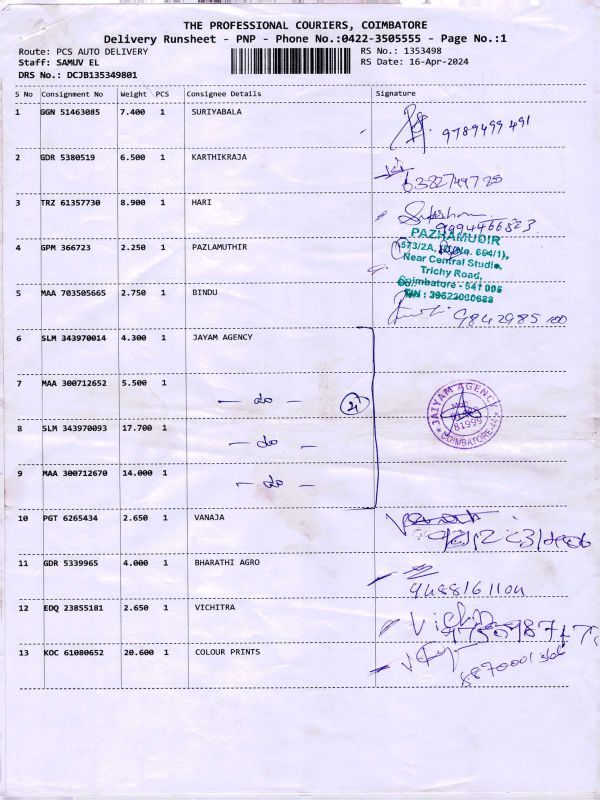 THE PROFESSIONAL COURIERS, COIMBATORE
Delivery Runsheet - PNP - Phone No.:0422-3505555 - Page No.:1
Route: PCS AUTO DELIVERY RS No.: 1353498
Staff: SAMUV EL RS Date: 16-Apr-2024
DRS No.: DCJB135349801
S No Consignment No Weight PCS Consignee Details Signature
1 GGN 51463085 7.400 1 SURIYABALA
9789499491
2 GDR 5380519 6.500 1 KARTHIKRAJA
6382749725
3 TRZ 61357730 8.900 1 HARI
9994466523
4 GPM 366723 2.250 1 PAZLAMUTHIR
PAZHAMUDIR
573/2A,
Near Central Studio,
Trichy Road,
Coimbatore - 641 005
5 MAA 703505665 2.750 1 BINDU
9842985100
6 SLM 343970014 4.300 1 JAYAM AGENCY
7 MAA 300712652 5.500 1
— do —
JAIYAM AGENCY
81999
COIMBATORE-44
8 SLM 343970093 17.700 1
— do —
9 MAA 300712670 14.000 1
— do —
10 PGT 6265434 2.650 1 VANAJA
11 GDR 5339965 4.000 1 BHARATHI AGRO
9488161104
12 EDQ 23855181 2.650 1 VICHITRA
13 KOC 61080652 20.600 1 COLOUR PRINTS
8870001366